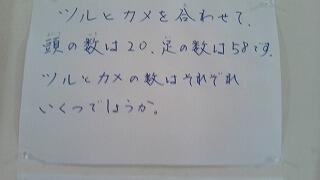 ツルとカメを合わせて、
頭の数は20、足の数は58です。
ツルとカメの数はそれぞれ
いくつでしょうか。